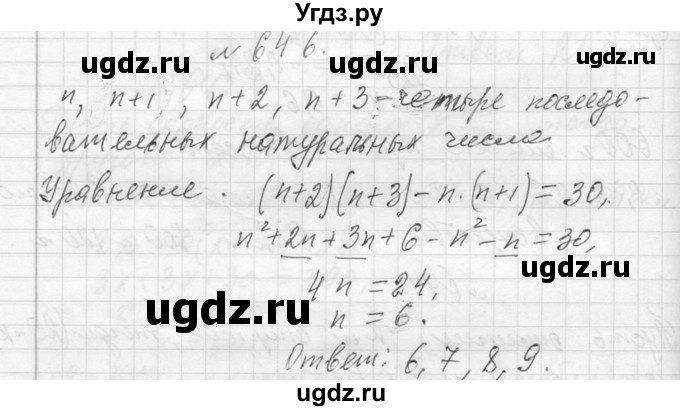 Угдз.ру
№ 646.
ugdz.ru ugdz.ru
n, n+1, n+2, n+3 - четыре последо-
вательных натуральных числа
Уравнение. (n+2)(n+3) - n·(n+1) = 30,
n²+2n+3n+6-n²-n=30,
ugdz.ru ugdz.ru
4n = 24,
n = 6.
Ответ: 6, 7, 8, 9.
ugdz.ru